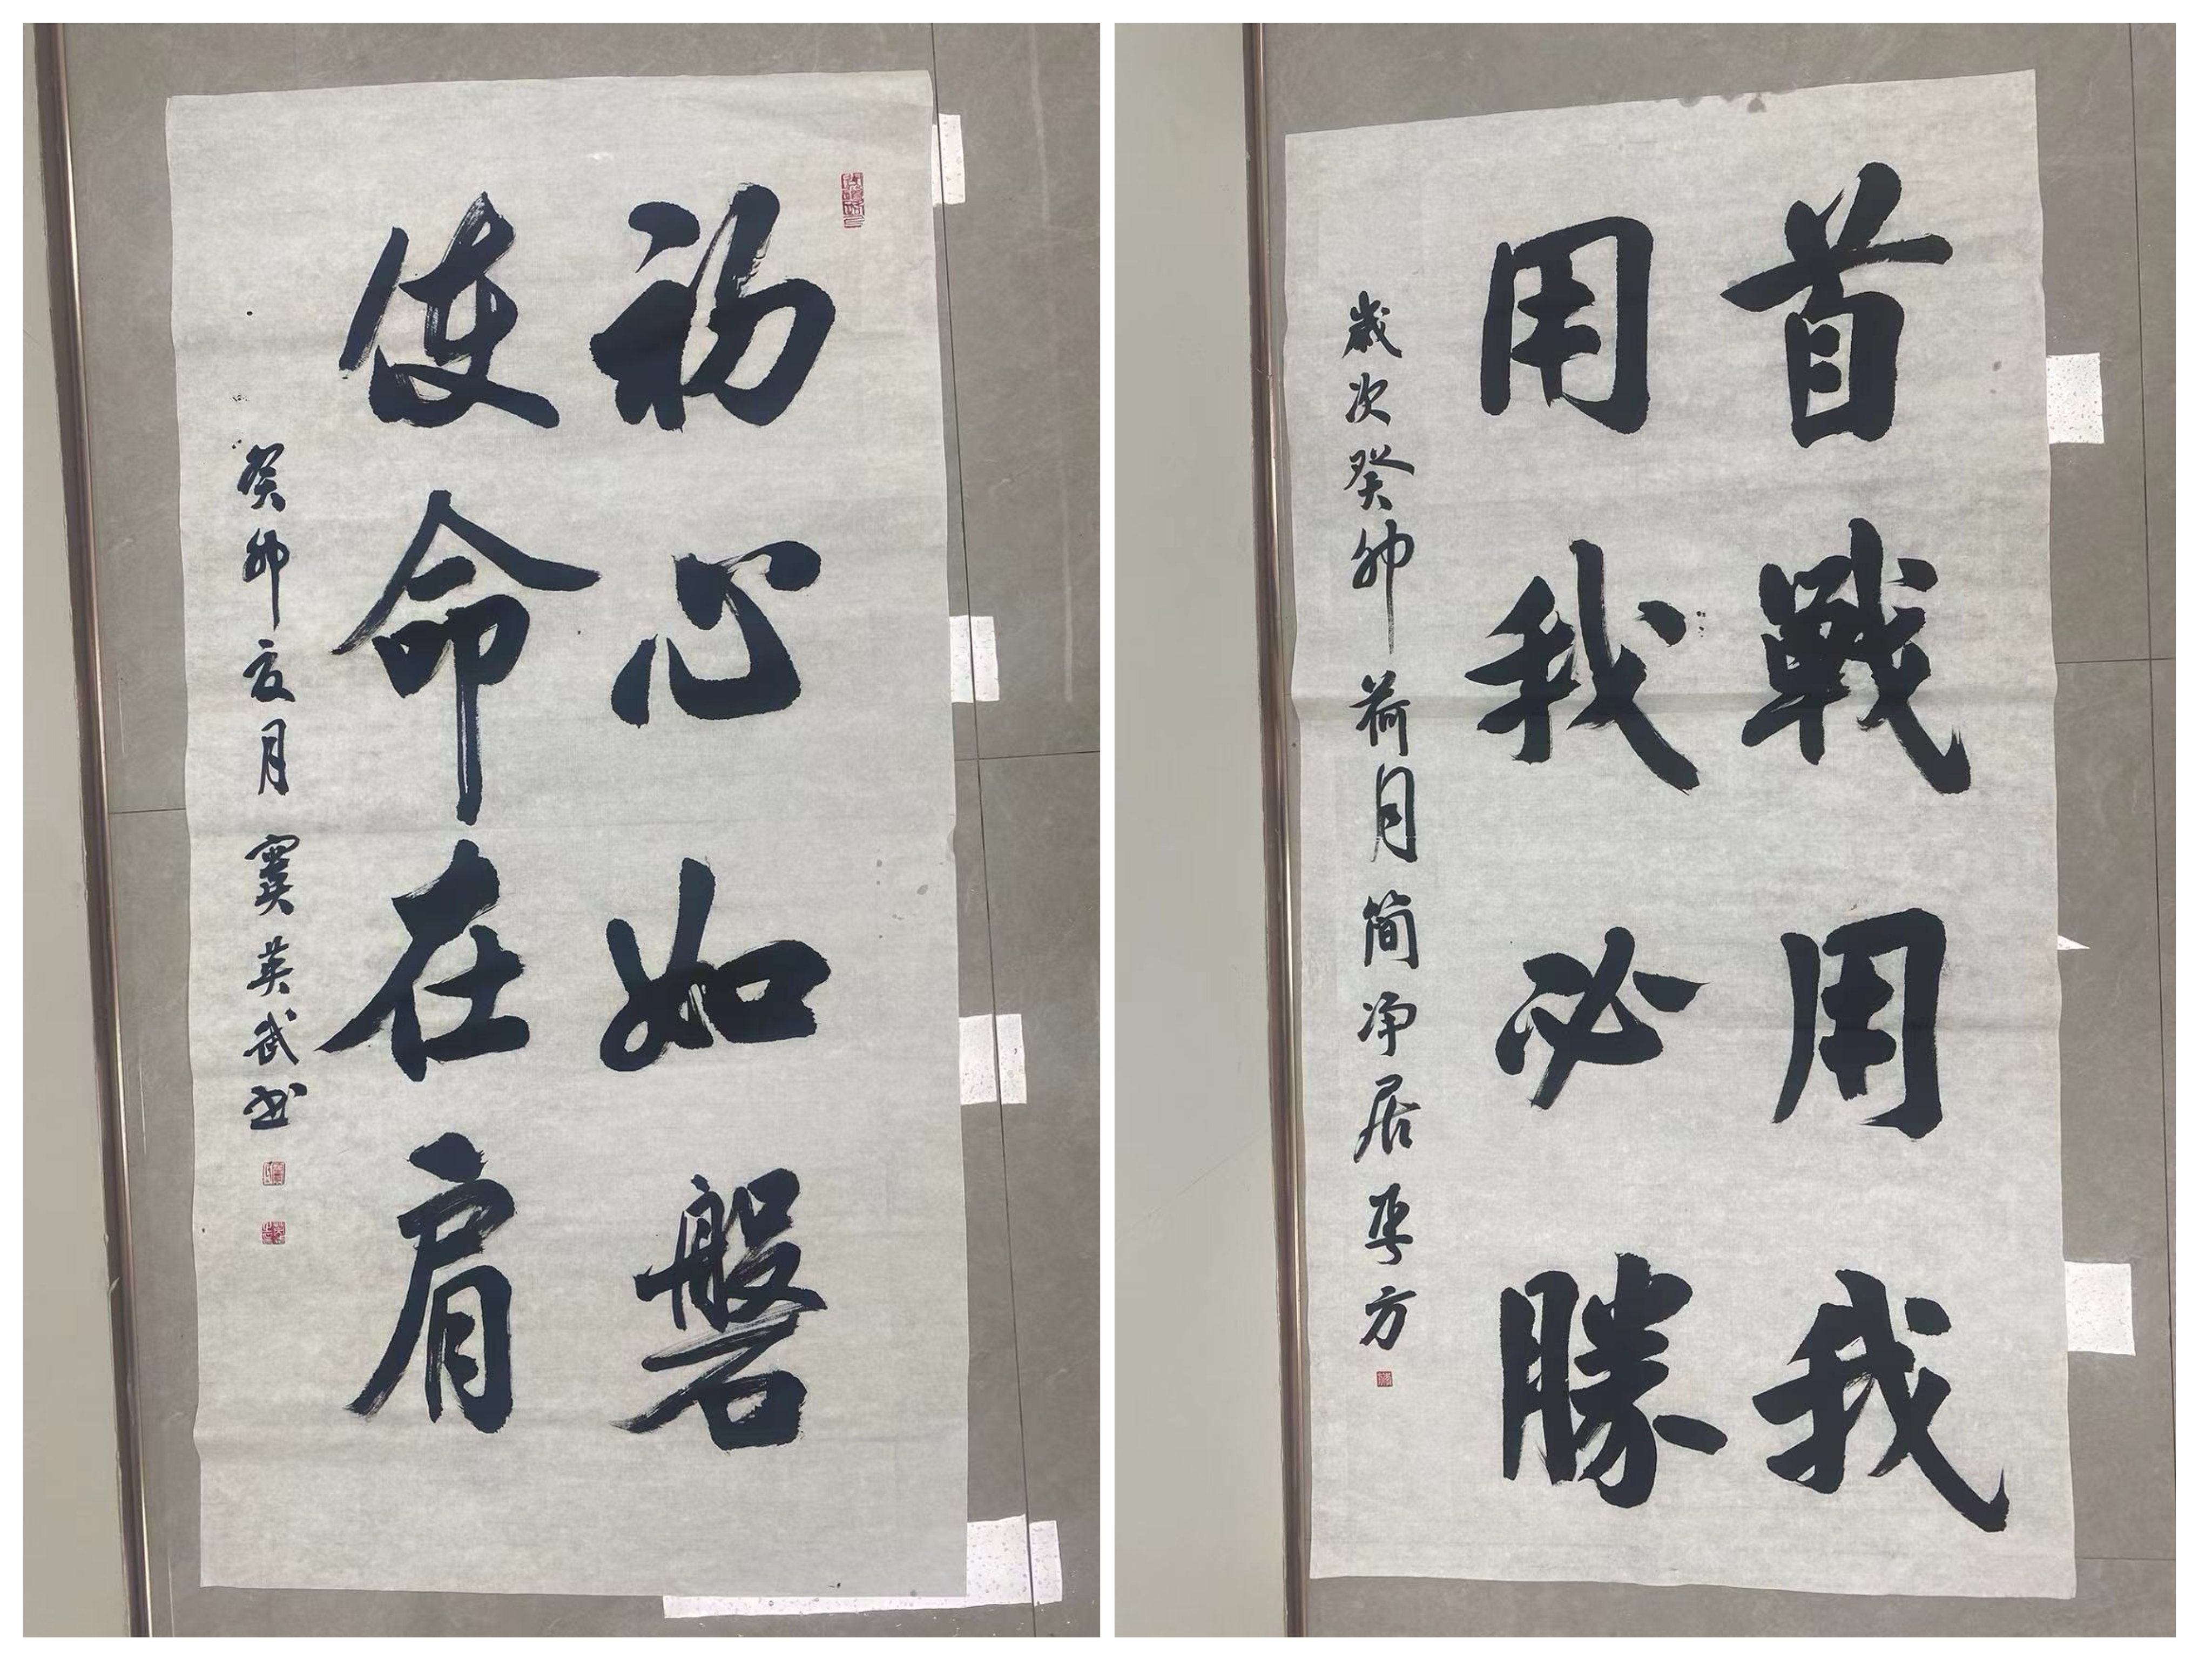 初心如磐
使命在肩
癸卯夏月 窦英武书
首戰用我
用我必勝
歲次癸卯荷月简净居